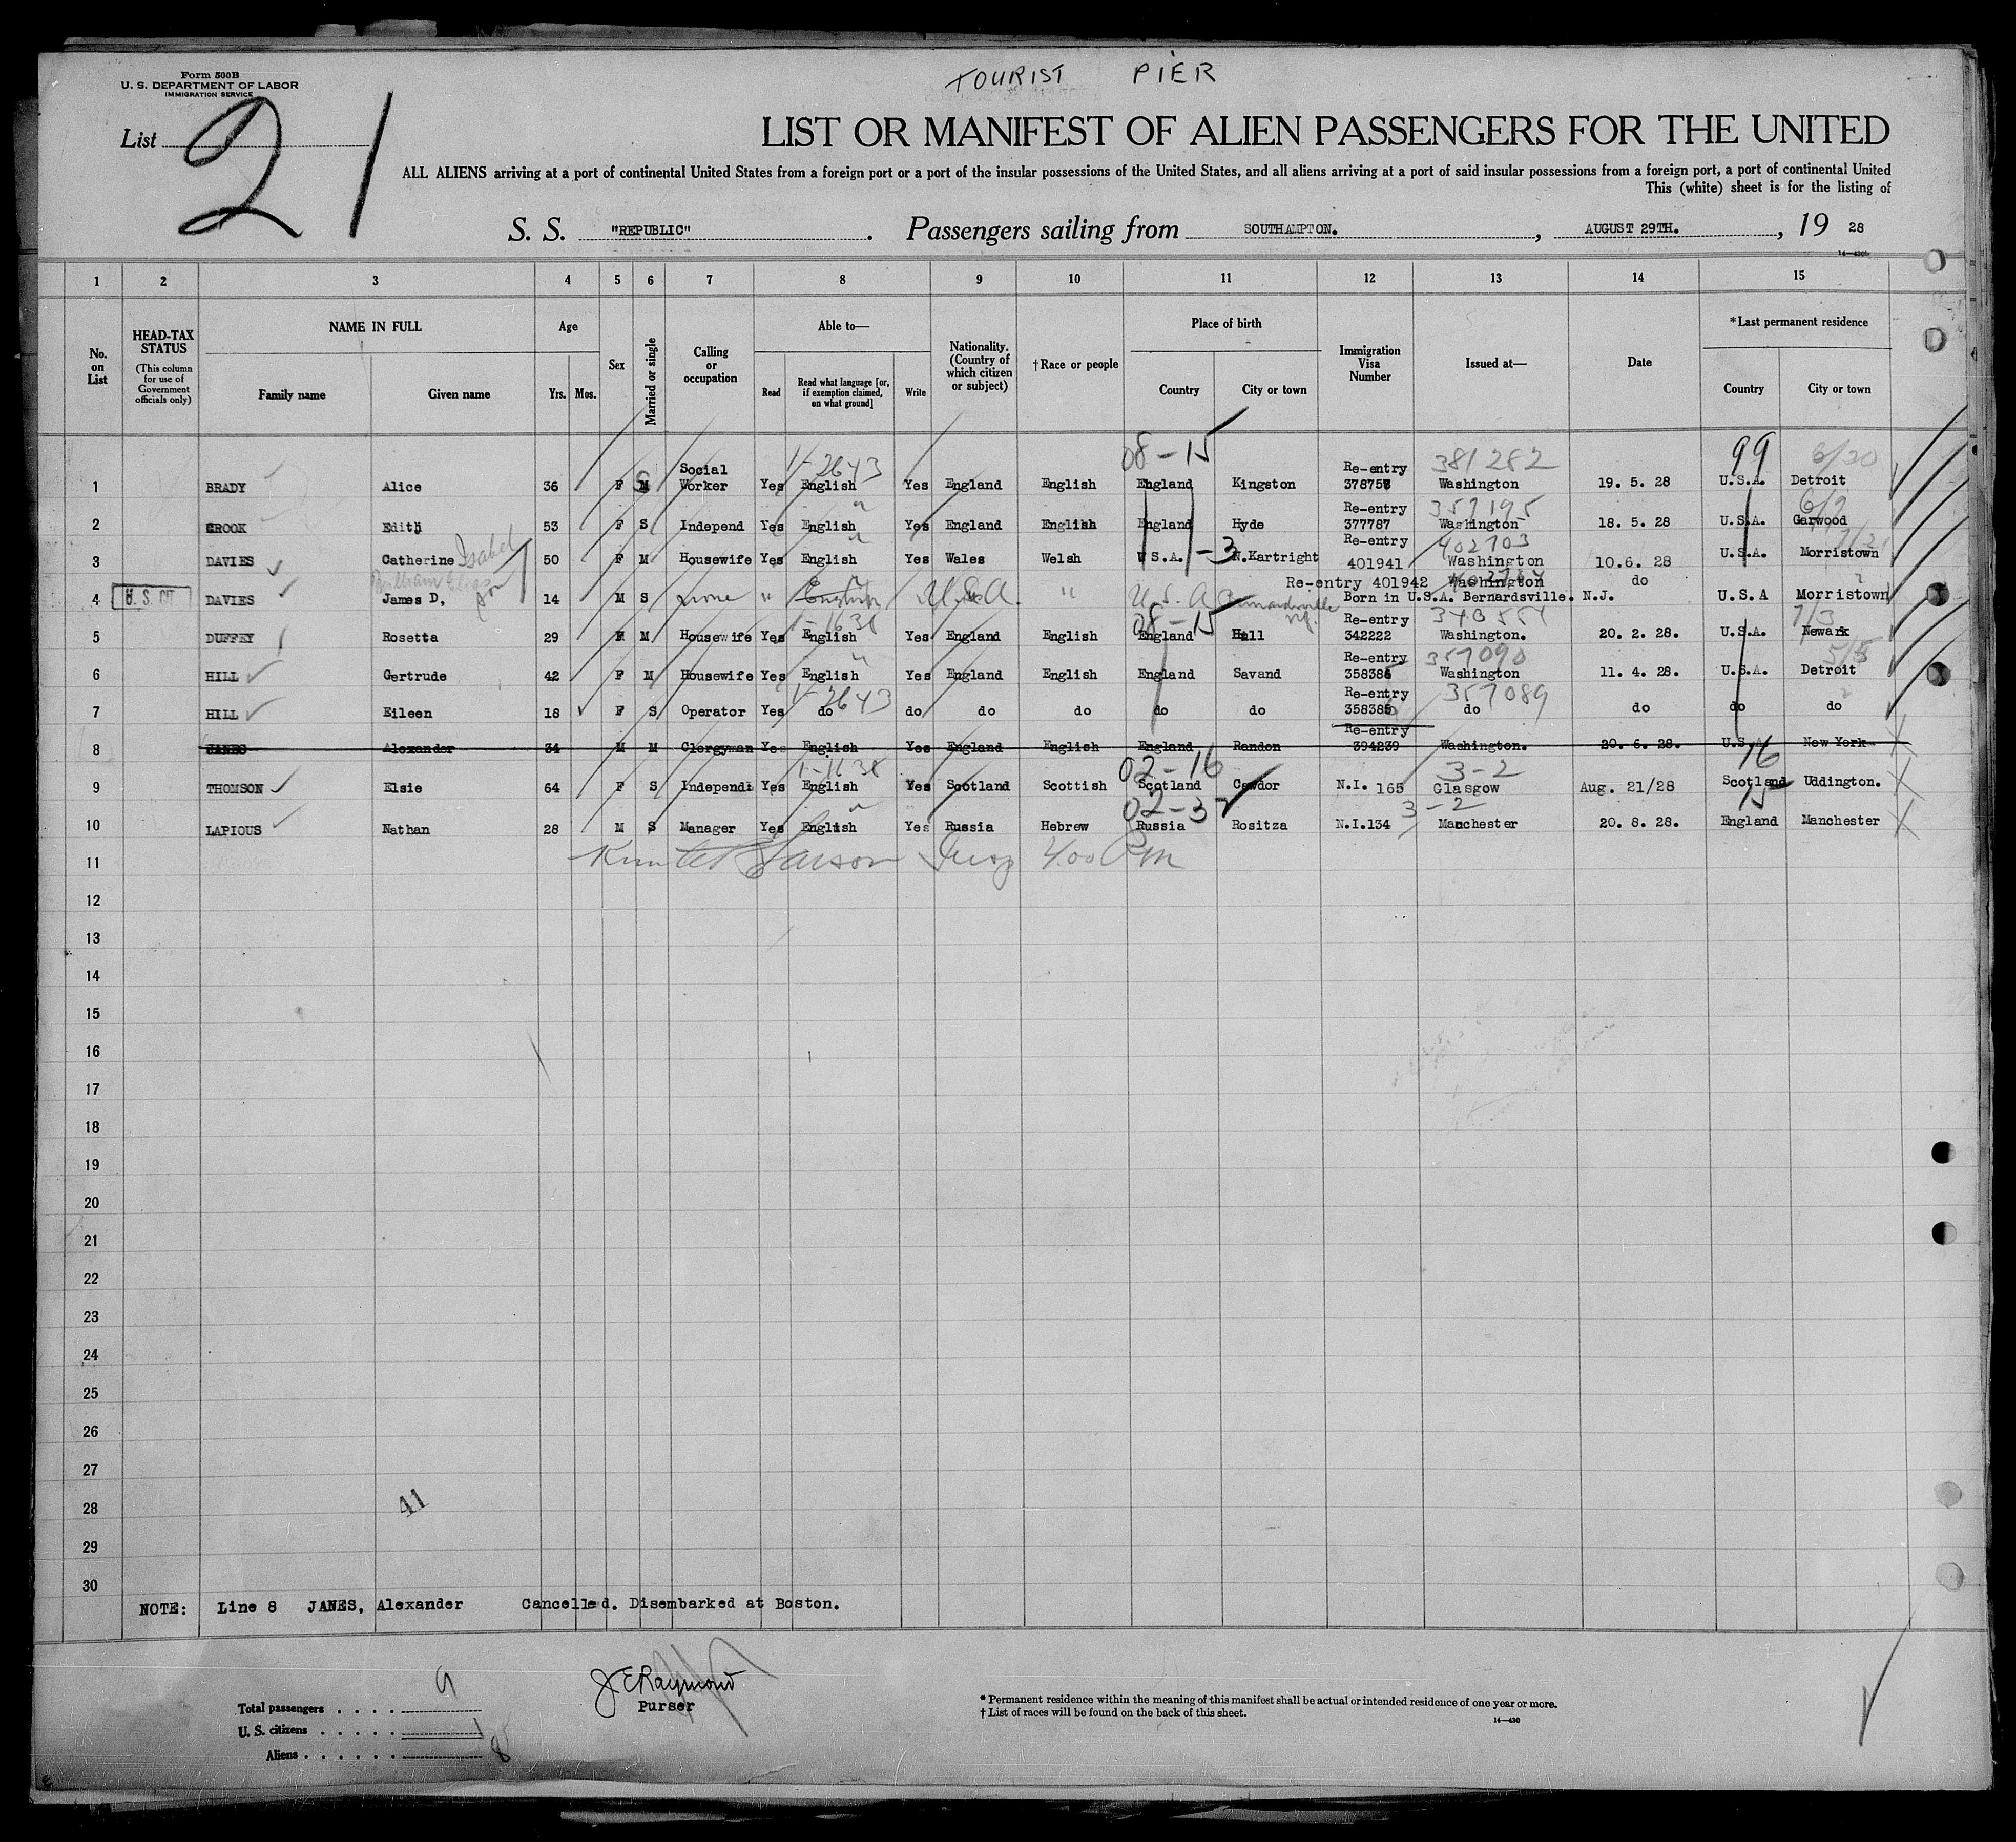 TOURIST PIER
Form 500B
U. S. DEPARTMENT OF LABOR
IMMIGRATION SERVICE
List 21
LIST OR MANIFEST OF ALIEN PASSENGERS FOR THE UNITED
ALL ALIENS arriving at a port of continental United States from a foreign port or a port of the insular possessions of the United States, and all aliens arriving at a port of said insular possessions from a foreign port, a port of continental United
This (white) sheet is for the listing of
S. S. "REPUBLIC". Passengers sailing from SOUTHAMPTON., AUGUST 29TH., 19 28
1 2 3 4 5 6 7 8 9 10 11 12 13 14 15
No. on List
HEAD-TAX STATUS (This column for use of Government officials only)
NAME IN FULL Family name Given name
Age Yrs. Mos.
Sex
Married or single
Calling or occupation
Able to— Read Read what language [or, if exemption claimed, on what ground] Write
Nationality. (Country of which citizen or subject)
†Race or people
Place of birth Country City or town
Immigration Visa Number
Issued at—
Date
*Last permanent residence Country City or town
08-15 99 6/20
1-2643 381282
1 BRADY Alice 36 F S Social Worker Yes English Yes England English England Kingston Re-entry 378758 Washington 19. 5. 28 U.S.A. Detroit
357195
2 CROOK Edith 53 F S Independ Yes English Yes England English England Hyde Re-entry 377787 Washington 18. 5. 28 U.S.A. Garwood
402703
3 DAVIES Catherine Isabel 50 F M Housewife Yes English Yes Wales Welsh U.S.A. -3 N.Kartright Re-entry 401941 Washington 10.6. 28 U.S.A. Morristown
Re-entry 401942 Washington do
4 U. S. CIT DAVIES James D, 14 M S none " English U.S.A. " U.S.A Bernardsville Born in U.S.A. Bernardsville. N.J. U.S.A Morristown
1-1638 08-15 7/3
5 DUFFEY Rosetta 29 F M Housewife Yes English Yes England English England Hull Re-entry 342222 Washington. 20. 2. 28. U.S.A. Newark
357090
6 HILL Gertrude 42 F M Housewife Yes English Yes England English England Savand Re-entry 358385 Washington 11. 4. 28. U.S.A. Detroit
1-2643 357089
7 HILL Eileen 18 F S Operator Yes do do do do do do Re-entry 358386 do do do do
8 JANES Alexander 34 M M Clergyman Yes English Yes England English England Randon Re-entry 394239 Washington. 20. 6. 28. U.S.A. New York
1-1638 02-16 3-2 16
9 THOMSON Elsie 64 F S Independ Yes English Yes Scotland Scottish Scotland Cawdor N.I. 165 Glasgow Aug. 21/28 Scotland Uddington.
02-32 3-2 15
10 LAPIOUS Nathan 28 M S Manager Yes English Yes Russia Hebrew Russia Rositza N.I.134 Manchester 20. 8. 28. England Manchester
11
12
13
14
15
16
17
18
19
20
21
22
23
24
25
26
27
28 41
29
30
NOTE: Line 8 JANES, Alexander Cancelled. Disembarked at Boston.
Total passengers 9
U. S. citizens 1
Aliens 8
J E Raymond
Purser
* Permanent residence within the meaning of this manifest shall be actual or intended residence of one year or more.
† List of races will be found on the back of this sheet.
14—430